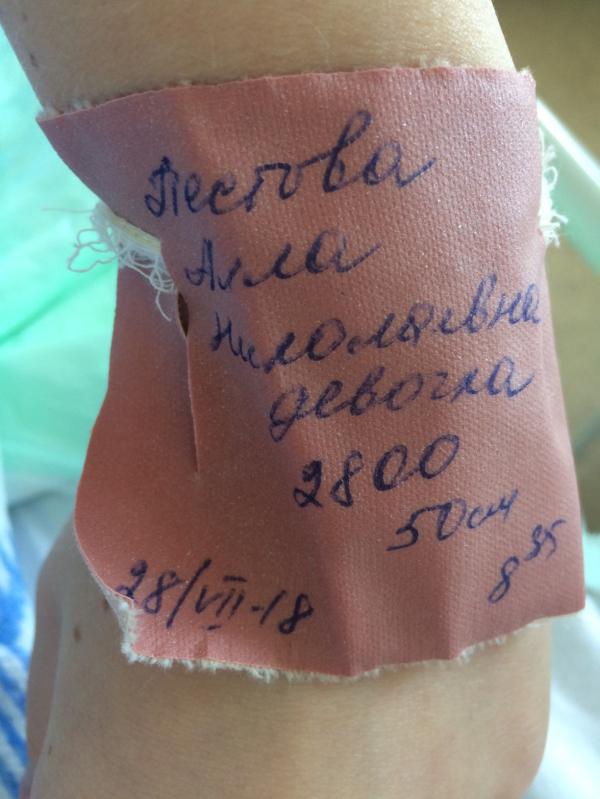 Пестова
Алла
Николаевна
девочка
2800
50 см
8 35
28/VII-18